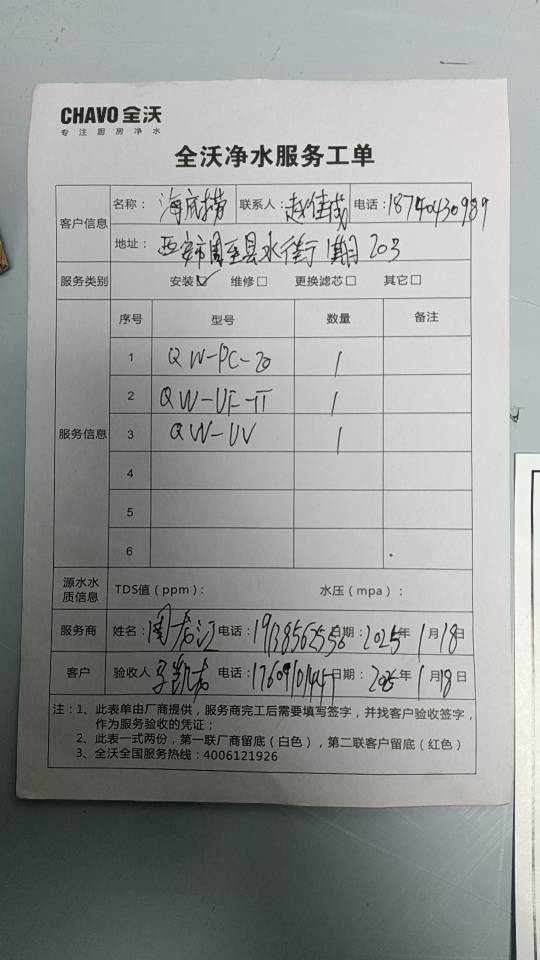 CHAVO 全沃
专注厨房净水
全沃净水服务工单
客户信息 名称： 海底捞 联系人： 赵佳 电话：18740430989
地址： 西安市周至县水街 期 203
服务类别 安装☑ 维修□ 更换滤芯□ 其它□
服务信息 序号 型号 数量 备注
1 QW-PC-20 1
2 QW-UF-II 1
3 QW-UV 1
4
5
6
源水水质信息 TDS值（ppm）： 水压（mpa）：
服务商 姓名： 周 江 电话：19138562556 日期：2025年1月18日
客户 验收人 凯 电话： 日期：2025年1月18日
注：1、此表单由厂商提供，服务商完工后需要填写签字，并找客户验收签字，
作为服务验收的凭证；
2、此表一式两份，第一联厂商留底（白色），第二联客户留底（红色）
3、全沃全国服务热线：4006121926